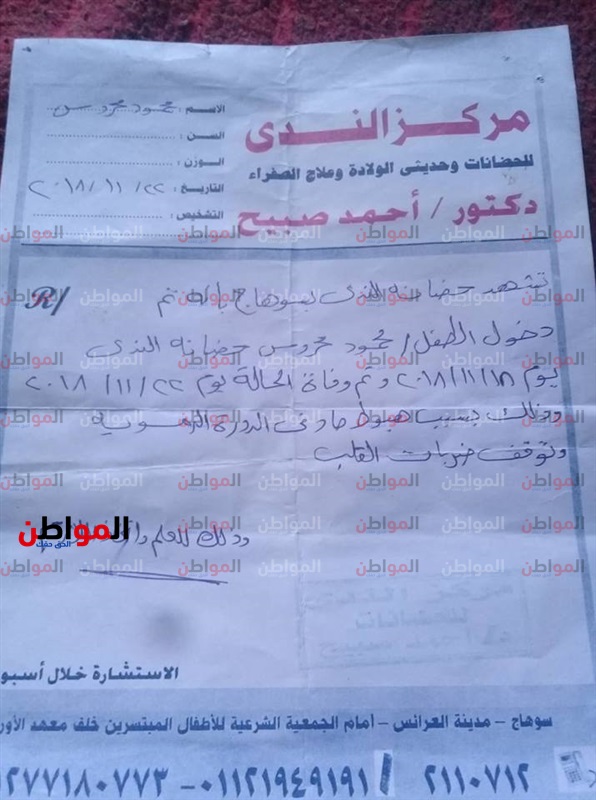 مركز الندى
للحضانات وحديثى الولادة وعلاج الصفراء
دكتور / أحمد صبيح
الاسم : محمود محروس
السن :
الوزن :
التاريخ : ٢٠١٨/١١/٢٢
التشخيص :
R/
تشهد حضانة الندى بسوهاج بانه تم
دخول الطفل / محمود محروس حضانه الندى
يوم ٢٠١٨/١١/١٨ وتم وفاة الحالة يوم ٢٠١٨/١١/٢٢
وذلك بسبب هبوط حاد فى الدورة الدموية
وتوقف ضربات القلب
وذلك للعلم
المواطن
الحق حقك
الاستشارة خلال أسبو
سوهاج - مدينة العرائس - أمام الجمعية الشرعية للأطفال المبتسرين خلف معهد الأور
٢١١٠٧١٢ / ٠١١٢١٩٤٩١٩١ - ١٢٧٧١٨٠٧٧٣